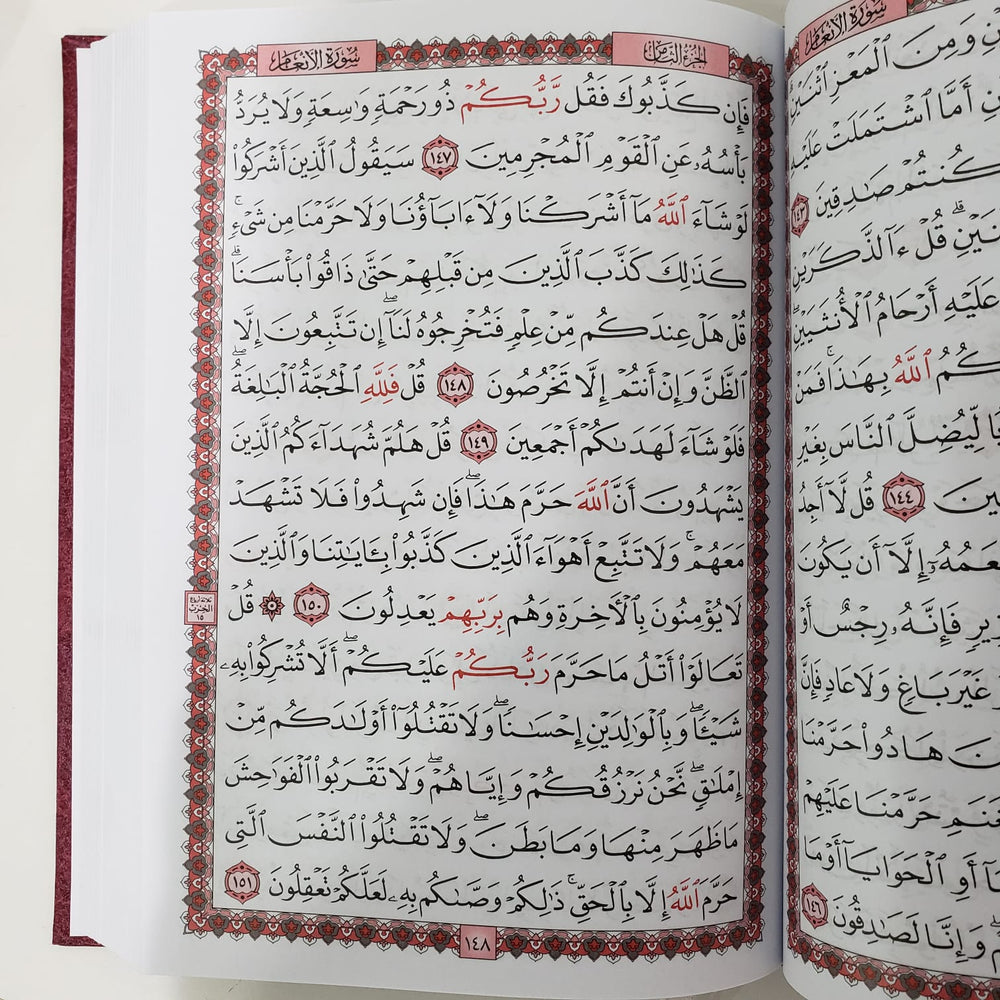 سُورَةُ الأَنْعَامِ
الجُزْءُ الثَّامِنُ
فَإِن كَذَّبُوكَ فَقُل رَّبُّكُمْ ذُو رَحْمَةٍ وَٰسِعَةٍ وَلَا يُرَدُّ
بَأْسُهُۥ عَنِ ٱلْقَوْمِ ٱلْمُجْرِمِينَ ١٤٧ سَيَقُولُ ٱلَّذِينَ أَشْرَكُوا۟
لَوْ شَآءَ ٱللَّهُ مَآ أَشْرَكْنَا وَلَآ ءَابَآؤُنَا وَلَا حَرَّمْنَا مِن شَىْءٍ ۚ
كَذَٰلِكَ كَذَّبَ ٱلَّذِينَ مِن قَبْلِهِمْ حَتَّىٰ ذَاقُوا۟ بَأْسَنَا ۗ
قُلْ هَلْ عِندَكُم مِّنْ عِلْمٍ فَتُخْرِجُوهُ لَنَآ ۖ إِن تَتَّبِعُونَ إِلَّا
ٱلظَّنَّ وَإِنْ أَنتُمْ إِلَّا تَخْرُصُونَ ١٤٨ قُلْ فَلِلَّهِ ٱلْحُجَّةُ ٱلْبَٰلِغَةُ ۖ
فَلَوْ شَآءَ لَهَدَىٰكُمْ أَجْمَعِينَ ١٤٩ قُلْ هَلُمَّ شُهَدَآءَكُمُ ٱلَّذِينَ
يَشْهَدُونَ أَنَّ ٱللَّهَ حَرَّمَ هَٰذَا ۖ فَإِن شَهِدُوا۟ فَلَا تَشْهَدْ
مَعَهُمْ ۚ وَلَا تَتَّبِعْ أَهْوَآءَ ٱلَّذِينَ كَذَّبُوا۟ بِـَٔايَٰتِنَا وَٱلَّذِينَ
لَا يُؤْمِنُونَ بِٱلْـَٔاخِرَةِ وَهُم بِرَبِّهِمْ يَعْدِلُونَ ١٥٠ ۞ قُلْ
تَعَالَوْا۟ أَتْلُ مَا حَرَّمَ رَبُّكُمْ عَلَيْكُمْ ۖ أَلَّا تُشْرِكُوا۟ بِهِۦ
شَيْـًٔا ۖ وَبِٱلْوَٰلِدَيْنِ إِحْسَٰنًا ۖ وَلَا تَقْتُلُوٓا۟ أَوْلَٰدَكُم مِّنْ
إِمْلَٰقٍ ۖ نَّحْنُ نَرْزُقُكُمْ وَإِيَّاهُمْ ۖ وَلَا تَقْرَبُوا۟ ٱلْفَوَٰحِشَ
مَا ظَهَرَ مِنْهَا وَمَا بَطَنَ ۖ وَلَا تَقْتُلُوا۟ ٱلنَّفْسَ ٱلَّتِى
حَرَّمَ ٱللَّهُ إِلَّا بِٱلْحَقِّ ۚ ذَٰلِكُمْ وَصَّىٰكُم بِهِۦ لَعَلَّكُمْ تَعْقِلُونَ ١٥١
ثلاثة أرباع
الحزب
١٥
١٤٨
سُورَةُ الأَنْعَامِ
وَمِنَ ٱلْمَعْزِ ٱثْنَيْنِ
أَمَّا ٱشْتَمَلَتْ عَلَيْهِ
كُنتُمْ صَٰدِقِينَ ١٤٣
قُلْ ءَآلذَّكَرَيْنِ
عَلَيْهِ أَرْحَامُ ٱلْأُنثَيَيْنِ
ٱللَّهُ بِهَٰذَا ۚ فَمَنْ
لِّيُضِلَّ ٱلنَّاسَ بِغَيْرِ
١٤٤ قُل لَّآ أَجِدُ
إِلَّآ أَن يَكُونَ
فَإِنَّهُۥ رِجْسٌ أَوْ
غَيْرَ بَاغٍ وَلَا عَادٍ فَإِنَّ
هَادُوا۟ حَرَّمْنَا
حَرَّمْنَا عَلَيْهِمْ
أَوِ ٱلْحَوَايَآ أَوْ مَا
وَإِنَّا لَصَٰدِقُونَ ١٤٦